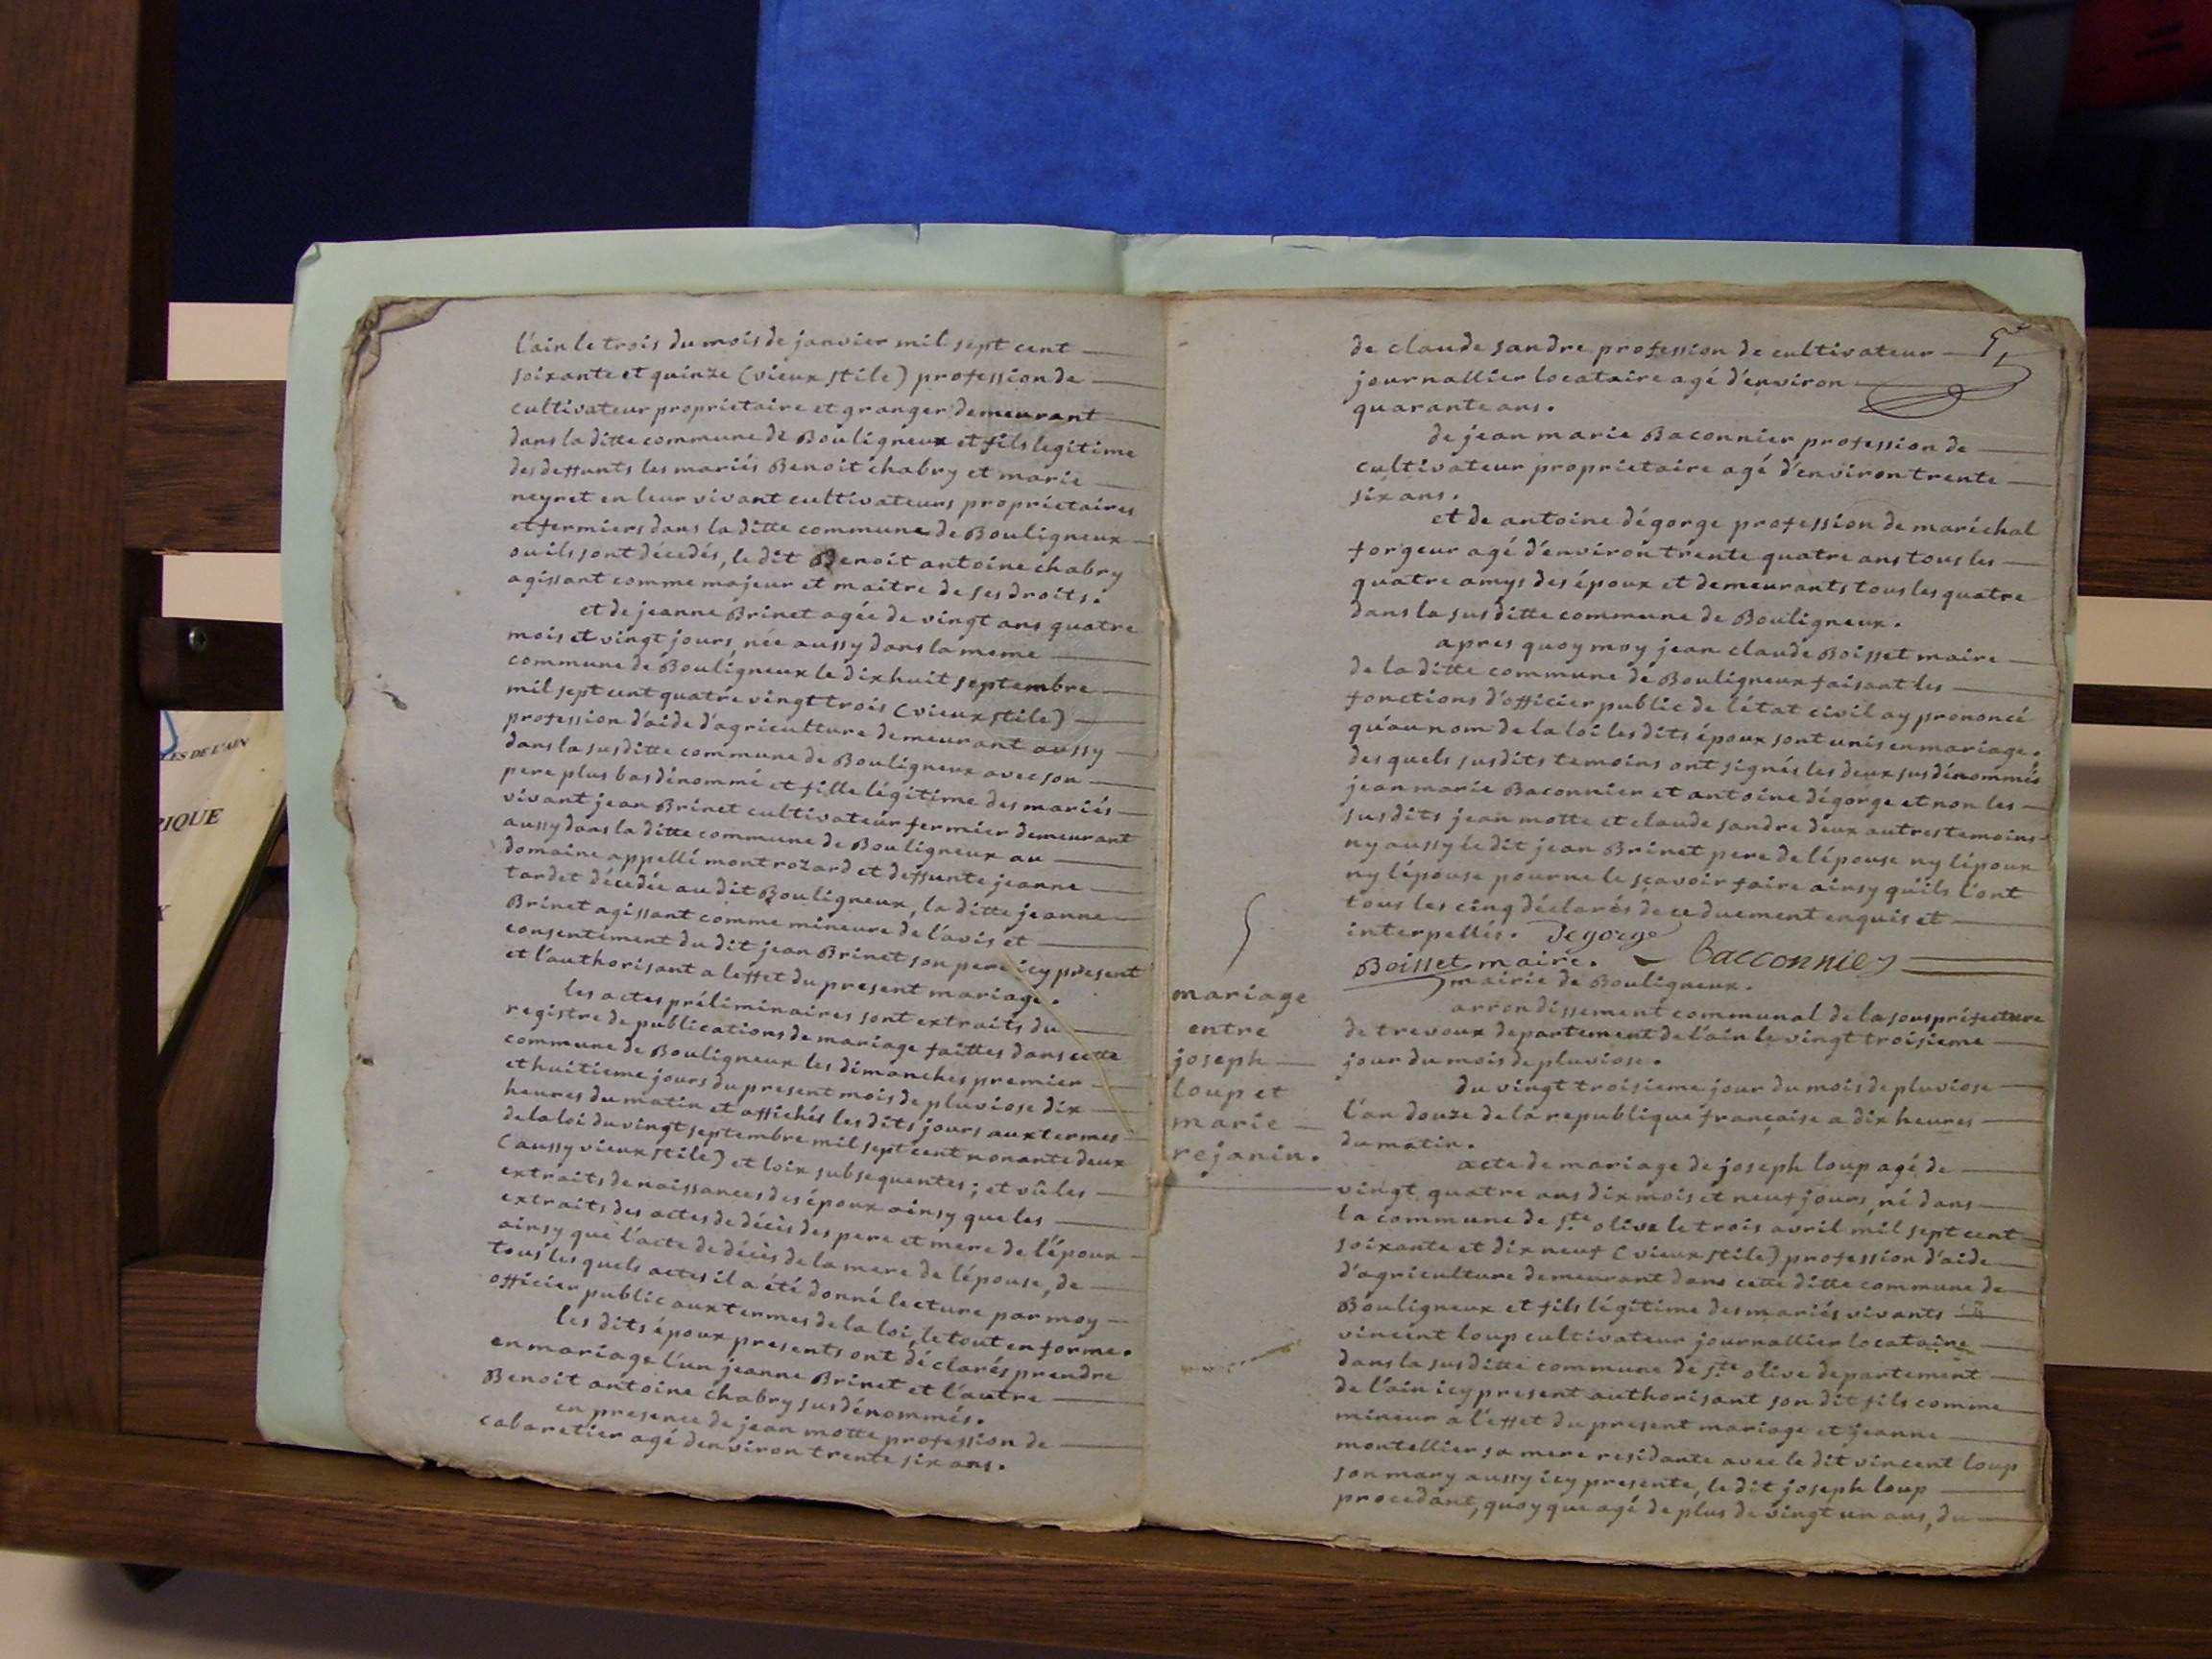 l'ain le trois du mois de janvier mil sept cent
soixante et quinze (vieux stile) profession de
cultivateur proprietaire et granger demeurant
dans la ditte commune de Bouligneux et fils legitime
des deffunts les mariés Benoit chabry et marie
neyret en leur vivant cultivateurs propriétaires
et fermiers dans la ditte commune de Bouligneux
ou ils sont décedés, le dit Benoit antoine chabry
agissant comme majeur et maitre de ses droits.
et de jeanne Brinet agée de vingt ans quatre
mois et vingt jours, née aussy dans la meme
commune de Bouligneux le dix huit septembre
mil sept cent quatre vingt trois (vieux stile)
profession d'aide d'agriculture demeurant aussy
dans la susditte commune de Bouligneux avec son
pere plus bas dénommé et fille légitime des mariés
vivant jean Brinet cultivateur fermier demeurant
aussy dans la ditte commune de Bouligneux au
domaine appellé montrozard et deffunte jeanne
tardet décedée au dit Bouligneux, la ditte jeanne
Brinet agissant comme mineure de l'avis et
consentement du dit jean Brinet son pere icy present
et l'authorisant a l'effet du present mariage.
les actes préliminaires sont extraits du
registre de publications de mariage faittes dans cette
commune de Bouligneux les dimanches premier
et huitieme jours du present mois de pluviose dix
heures du matin et affichés les dits jours aux termes
de la loi du vingt septembre mil sept cent nonante deux
(aussy vieux stile) et loix subsequentes; et vû les
extraits de naissances des époux ainsy que les
extraits des actes de décès des pere et mere de l'époux
ainsy que l'acte de décès de la mere de l'épouse, de
tous les quels actes il a été donné lecture par moy
officier public aux termes de la loi, le tout en forme.
les dits époux presents ont déclarés prendre
en mariage l'un jeanne Brinet et l'autre
Benoit antoine chabry susdénommés.
en presence de jean motte profession de
cabaretier agé d'environ trente six ans.
de claude sandre profession de cultivateur
journallier locataire agé d'environ
quarante ans.
de jean marie Baconnier profession de
cultivateur proprietaire agé d'environ trente
six ans.
et de antoine dégorge profession de maréchal
forgeur agé d'environ trente quatre ans tous les
quatre amys des époux et demeurants tous les quatre
dans la susditte commune de Bouligneux.
apres quoy moy jean claude Boisset maire
de la ditte commune de Bouligneux faisant les
fonctions d'officier public de l'état civil ay prononcé
qu'au nom de la loi les dits époux sont unis en mariage.
des quels susdits temoins ont signés les deux susdénommés
jean marie Baconnier et antoine dégorge et non les
susdits jean motte et claude sandre deux autres temoins
ny aussy le dit jean Brinet pere de l'épouse ny l'époux
ny l'épouse pour ne le sçavoir faire ainsy qu'ils l'ont
tous les cinq déclarés de ce duement enquis et
interpellés. Degorge
Boisset maire. Bacconnier
mairie de Bouligneux.
arrondissement communal de la souspréfecture
de trevoux departement de l'ain le vingt troisieme
jour du mois de pluviose.
mariage
entre
joseph
loup et
marie
rejanin.
du vingt troisieme jour du mois de pluviose
l'an douze de la republique française a dix heures
du matin.
acte de mariage de joseph loup agé de
vingt quatre ans dix mois et neuf jours, né dans
la commune de Ste olive le trois avril mil sept cent
soixante et dix neuf (vieux stile) profession d'aide
d'agriculture demeurant dans cette ditte commune de
Bouligneux et fils légitime des mariés vivants
vincent loup cultivateur journallier locataire
dans la susditte commune de Ste olive departement
de l'ain icy present authorisant son dit fils comme
mineur a l'effet du present mariage et jeanne
montellier sa mere residante avec le dit vincent loup
son mary aussy icy presente, le dit joseph loup
procedant, quoy que agé de plus de vingt un ans, du
LES DE L'AIN
RIQUE